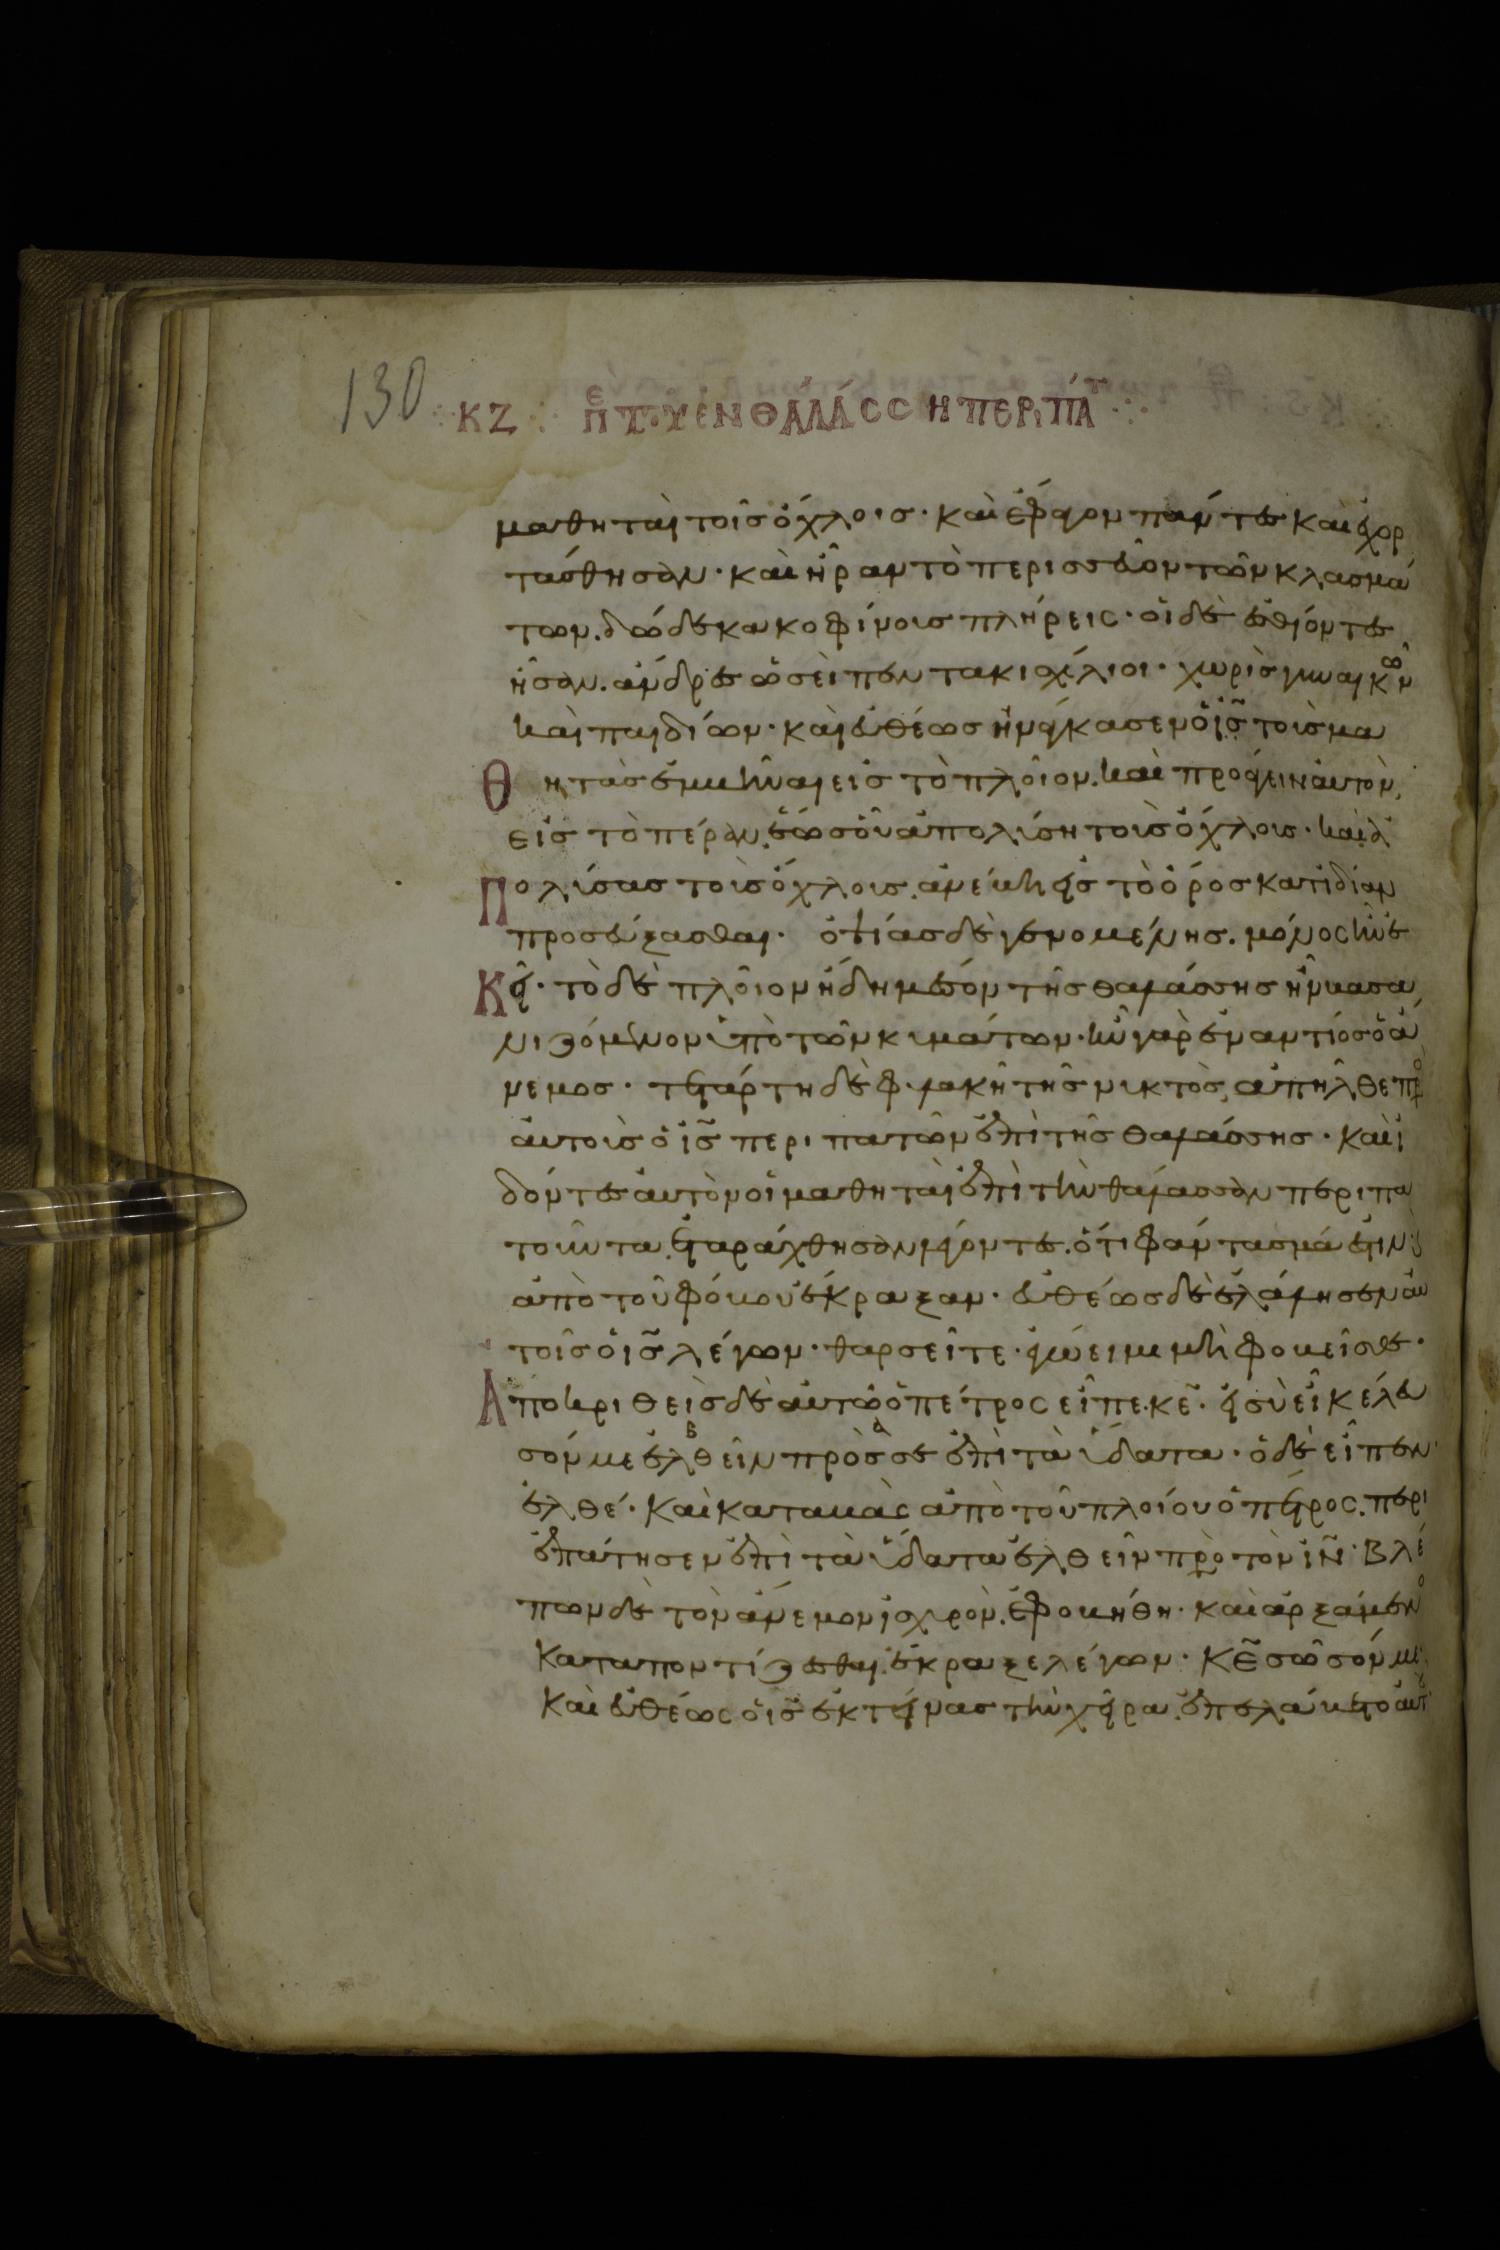 130
ΚΖ ΠΕ Τ͂ ΕΝ ΘΑΛΑΣΣΗ ΠΕΡΙΠΑΤ
μαθηταὶ τοῖς ὄχλοις· καὶ ἔφαγον πάντες καὶ ἐχορ
τάσθησαν· καὶ ἦραν τὸ περισσεῦον τῶν κλασμά
των. δώδεκα κοφίνους πλήρεις· οἱ δὲ ἐσθίοντες
ἦσαν. ἄνδρες ὡσεὶ πεντακισχίλιοι· χωρὶς γυναικῶν
καὶ παιδίων· καὶ εὐθέως ἠνάγκασεν ὁ ἰς̅ τοὺς μα
θητὰς ἐμβῆναι εἰς τὸ πλοῖον. καὶ προάγειν αὐτὸν,
εἰς τὸ πέραν. ἕως οὗ ἀπολύση τοὺς ὄχλους· καὶ ἀ
πολύσας τοὺς ὄχλους. ἀνέβη εἰς τὸ ὄρος κατιδίαν
προσεύξασθαι· ὀψίας δὲ γενομένης. μόνος ἦν ἐ
κεῖ· τὸ δὲ πλοῖον ἤδη μέσον τῆς θαλάσσης ἦν βασα
νιζόμενον ὑπὸ τῶν κυμάτων· ἦν γὰρ ἐναντίος ὁ ἄ
νεμος· τετάρτη δὲ φυλακῆ τῆς νυκτὸς, ἀπῆλθε πρὸ
αὐτοὺς ὁ ἰς̅ περιπατῶν ἐπὶ τῆς θαλάσσης· καὶ ἰ
δόντες αὐτὸν οἱ μαθηταὶ ἐπὶ τὴν θάλασσαν περιπα
τοῦντα. ἐταράχθησαν λέγοντες. ὅτι φάντασμά ἐστιν·
ἀπὸ τοῦ φόβου ἔκραξαν· εὐθέως δὲ ἐλάλησεν αὐ
τοῖς ὁ ἰς̅ λέγων· θαρσεῖτε· ἐγώ εἰμι μὴ φοβεῖσθε·
Ἀποκριθεὶς δὲ αὐτῶ ὁ πέτρος εἶπε· κε̅· εἰ σὺ εἶ κέλευ
σόν με ἐλθεῖν πρὸς σε ἐπὶ τὰ ὕδατα· ὁ δὲ εἶπεν·
ἐλθέ· καὶ καταβὰς ἀπὸ τοῦ πλοίου ὁ πέτρος. περι
επάτησεν ἐπὶ τὰ ὕδατα ἐλθεῖν πρὸ τὸν ἰν̅· βλέ
πων δὲ τὸν ἄνεμον ἰσχυρὸν. ἐφοβήθη· καὶ ἀρξάμενο
καταποντίζεσθαι. ἔκραξε λέγων· κε̅ σῶσόν με·
καὶ εὐθέως ὁ ἰς̅ ἐκτείνας τὴν χεῖρα. ἐπελάβετο αὐτ